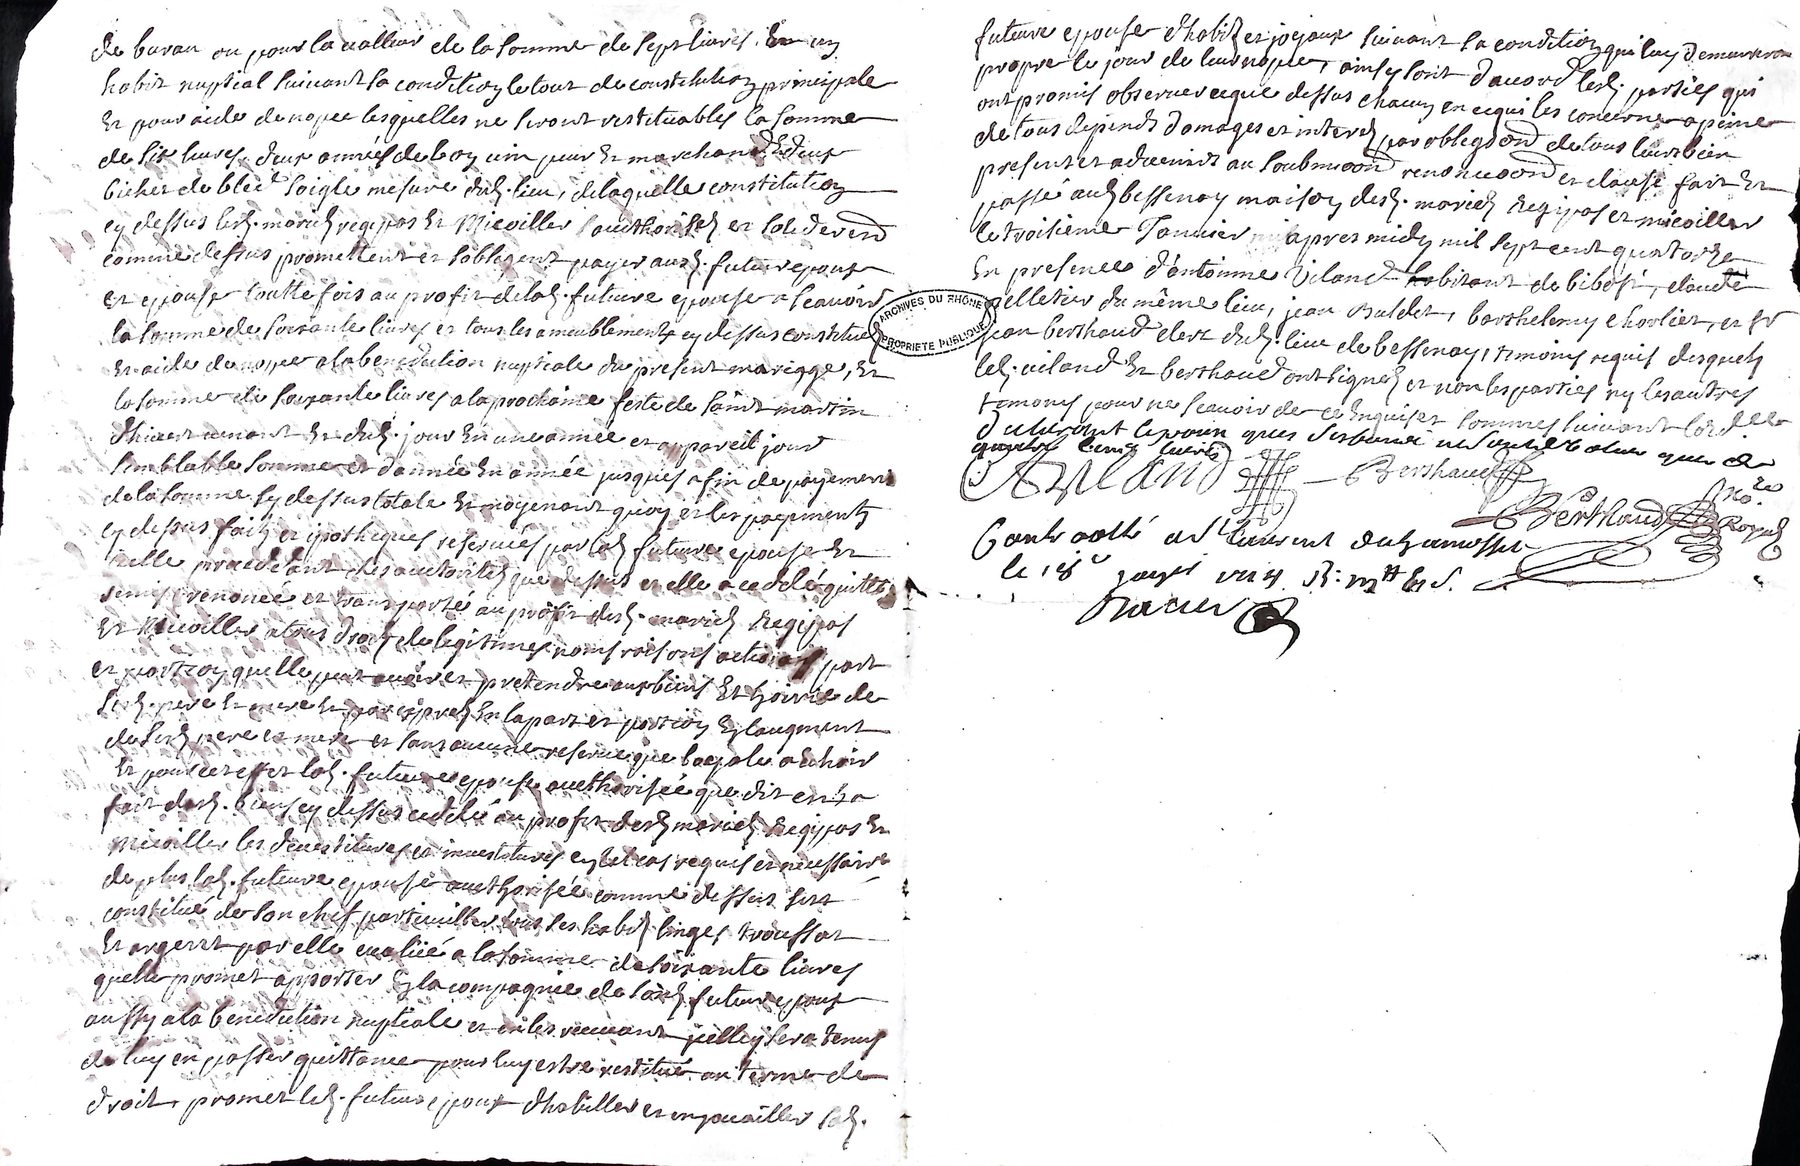 de buran ou pour la valleur de la somme de sept livres. Et un
habit nuptial suivant sa condition le tout de constitution principale
Et pour aide de nopce lesquelles ne seront restituables la somme
de six livres, deux années de bon vin pur Et marchand & deux
bichet de bled soigle mesure dud. lieu, de laquelle constitution
cy dessus lesd. mariés regipas Et Miroiller sauthorisés et solideront
comme dessus promettent et sobligent payer ausd. futur epoux
et epouse touttefois au profit de lad. future epouse a scavoir
la somme de soixante livres et tous les ameublements cy dessus constitués
Et aide de nopce a la benediction nuptiale du present mariage, Et
la somme de soixante livres a la prochaine feste de saint martin
dhivert venant Et dud. jour En une année et a pareil jour
semblable somme et dannée En année jusques a fin de payement
de la somme cy dessus totale Et moyenant quoy et les payements
cy dessus faits et ipotheques reservés par lad. future epouse Et
icelle procedant des authorités que dessus et elle a cedé quitté
remis renoncé et transporté au profit desd. mariés Regipas
Et Miroiller a tous droits de legitimes noms raisons actions part
et portion quelle peut avoir et pretendre aux biens Et hoirie de
sesd. pere Et mere Et par exprés En la part et portion En laugment
de sesd. pere et mere et sans aucune reserve que loyale echoir
Et pour cet effet lad. future epouse authorisée que dit est sa
fait desd. biens cy dessus cedés au profit desd. mariés Regipas Et
Miroiller les devestitures et investitures en tel cas requis et necessaire
de plus lad. future epouse authorisée comme dessus sest
constitué de son chef particuillier tous ses habits linges troussat
Et argent par elle evalüé a la somme de soixante livres
quelle promet apporter En la compagnie de sond. futur epoux
aussy a la benediction nuptiale et en les recevant icelluy sera tenus
de luy en passer quittance pour luy estre restitué au terme de
droit, promet led. futur epoux dhabiller et enjouailler lad.
future epouse dhabits et joyaux suivant sa condition qui luy demeureront
propre le jour de leur nopce, ainsy sont daccord lesd. parties qui
ont promis observer ce que dessus chacun en ce qui les concerne a peine
de tous depends domages et interets par obligaõn de tous leurs biens
present et advenirs au soubmissions renonciaõn et clause fait Et
passé aud. bessenay maison desd. mariés Regipas et miroiller
le troisieme Janvier apres midy mil sept cent quatorze
En presence d'antoinne Viland habitant de bibost, claude
pelletier du même lieu, jean Buldet, barthelemy chorlier, et Sr
jean berthaud clerc dud. lieu de bessenay, temoins requis desquels
led. viland Et berthaud ont signés et non les parties ny les autres
temoins pour ne scavoir de ce Enquis et sommés suivant lord.ce

Berthaud
Berthaud no.re Royal
Controollé a St laurent de chamousset
le 18e janvier 1714